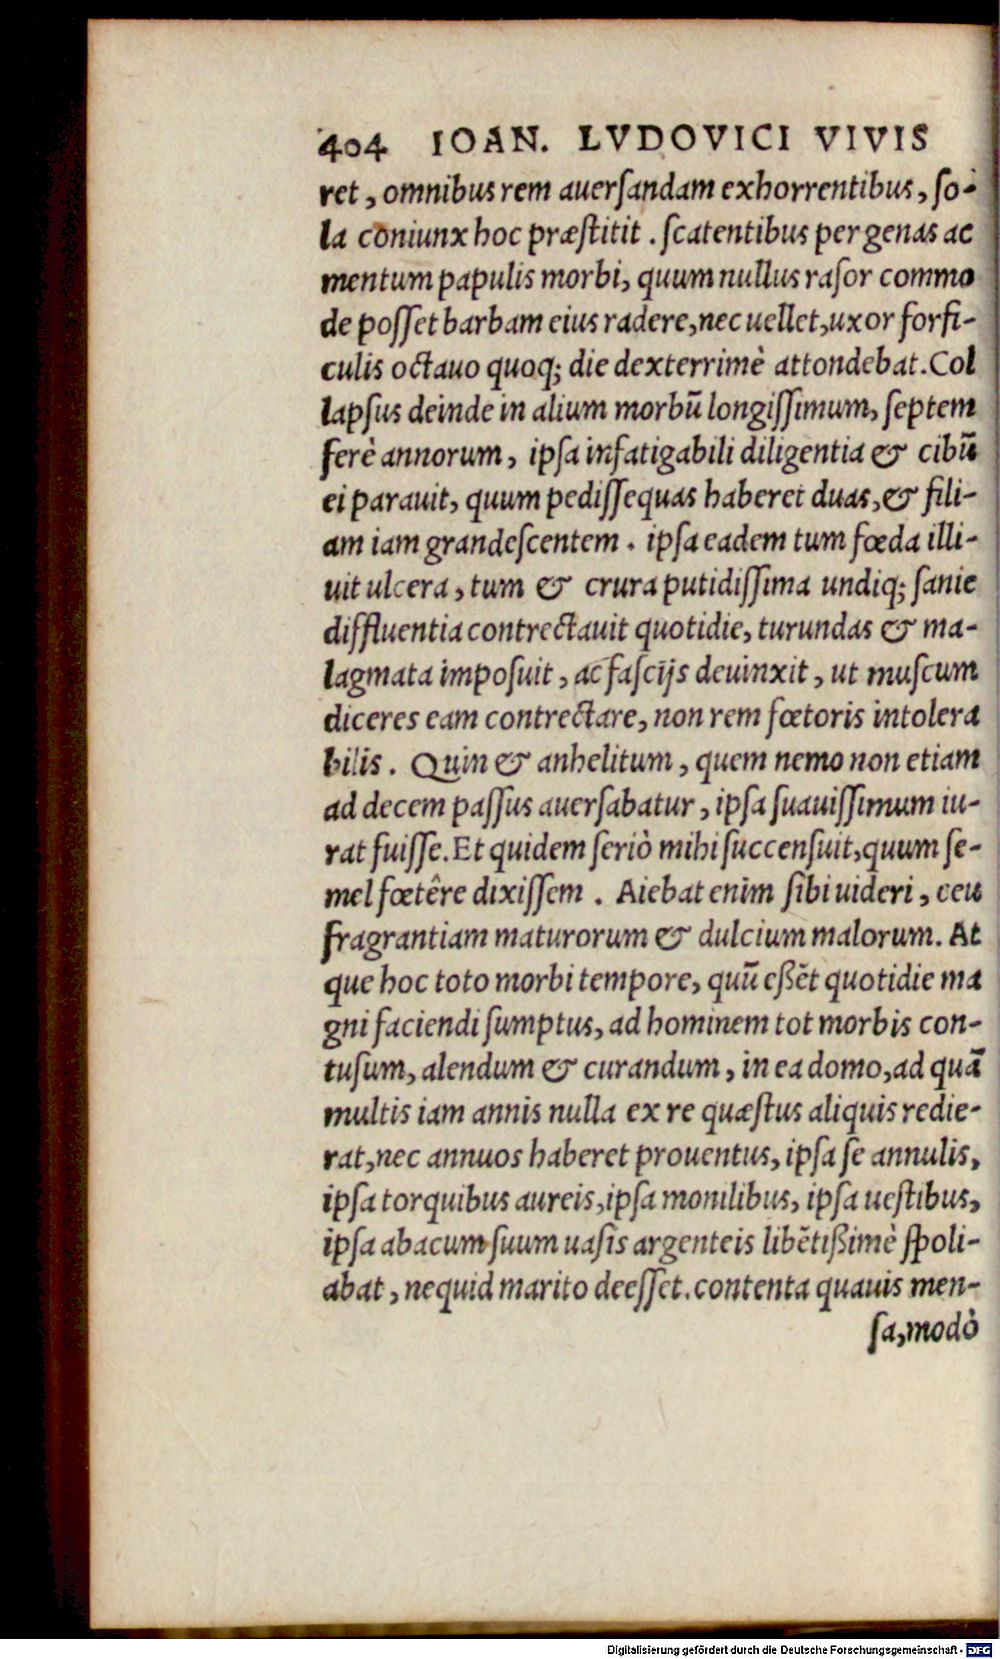 404 IOAN. LVDOVICI VIVIS
ret, omnibus rem auersandam exhorrentibus, so-
la coniunx hoc præstitit. scatentibus per genas ac
mentum papulis morbi, quum nullus rasor commo
de posset barbam eius radere, nec uellet, uxor forfi-
culis octauo quoq; die dexterrimè attondebat. Col
lapsus deinde in alium morbū longissimum, septem
ferè annorum, ipsa infatigabili diligentia & cibū
ei parauit, quum pedissequas haberet duas, & fili-
am iam grandescentem. ipsa eadem tum fœda illi-
uit ulcera, tum & crura putidissima undiq; sanie
diffluentia contrectauit quotidie, turundas & ma-
lagmata imposuit, ac fascijs deuinxit, ut muscum
diceres eam contrectare, non rem fœtoris intolera
bilis. Quin & anhelitum, quem nemo non etiam
ad decem passus auersabatur, ipsa suauissimum iu-
rat fuisse. Et quidem seriò mihi succensuit, quum se-
mel fœtêre dixissem. Aiebat enim sibi uideri, ceu
fragrantiam maturorum & dulcium malorum. At
que hoc toto morbi tempore, quū eßēt quotidie ma
gni faciendi sumptus, ad hominem tot morbis con-
tusum, alendum & curandum, in ea domo, ad quā
multis iam annis nulla ex re quæstus aliquis redie-
rat, nec annuos haberet prouentus, ipsa se annulis,
ipsa torquibus aureis, ipsa monilibus, ipsa uestibus,
ipsa abacum suum uasis argenteis libētißimè spoli-
abat, nequid marito deesset. contenta quauis men-
sa, modò
Digitalisierung gefördert durch die Deutsche Forschungsgemeinschaft - DFG